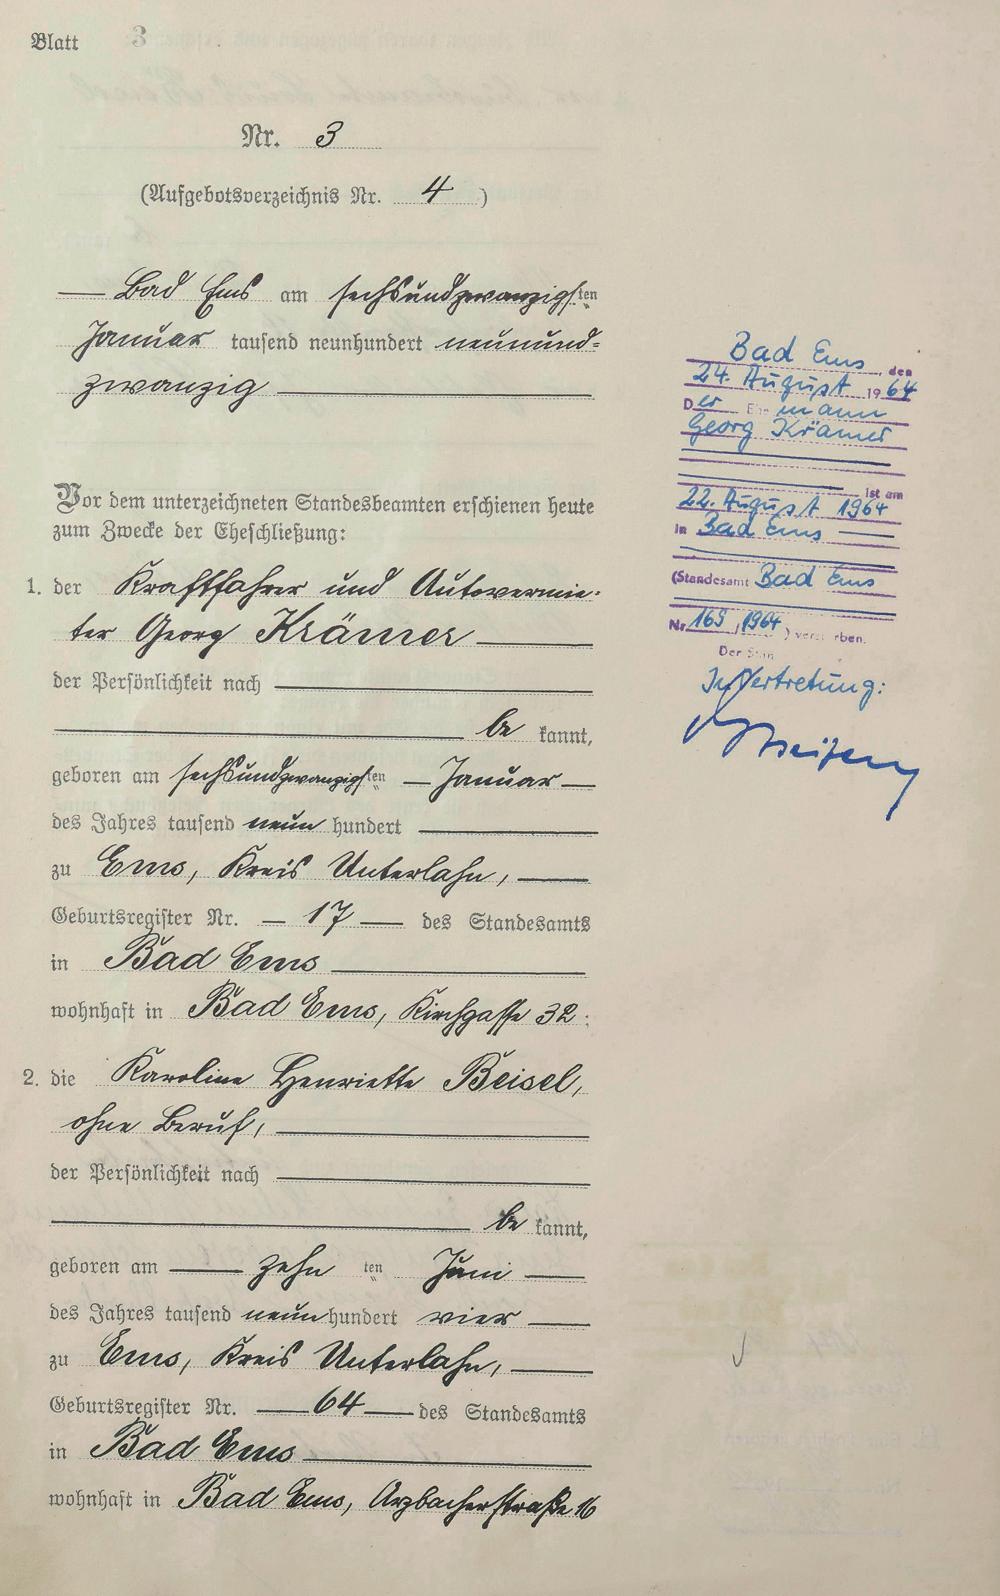 Blatt 3
Nr. 3
(Aufgebotsverzeichnis Nr. 4 )
Bad Ems am sechsundzwanzigsten
Januar tausend neunhundert neunund-
zwanzig
Vor dem unterzeichneten Standesbeamten erschienen heute
zum Zwecke der Eheschließung:
1. der Kraftfahrer und Autovermie-
ter Georg Krämer
der Persönlichkeit nach
be kannt,
geboren am sechsundzwanzigsten Januar
des Jahres tausend neun hundert
zu Ems, Kreis Unterlahn,
Geburtsregister Nr. 17 des Standesamts
in Bad Ems
wohnhaft in Bad Ems, Kirchgasse 32.
2. die Karoline Henriette Beisel,
ohne Beruf,
der Persönlichkeit nach
be kannt,
geboren am zehn ten Juni
des Jahres tausend neun hundert vier
zu Ems, Kreis Unterlahn,
Geburtsregister Nr. 64 des Standesamts
in Bad Ems
wohnhaft in Bad Ems, Arzbacherstraße 16
Bad Ems, den
24. August 1964
Der Ehemann
Georg Krämer
ist am
22. August 1964
in Bad Ems
(Standesamt Bad Ems
Nr. 169 / 1964 ) verstorben.
Der Stan
In Vertretung: